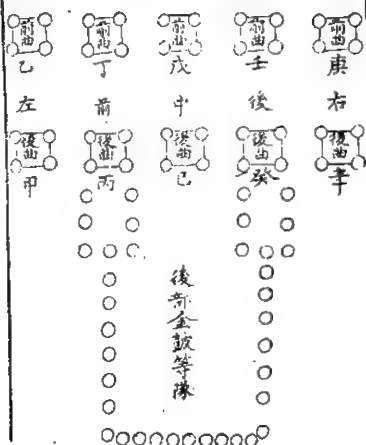 前曲庚右後曲辛
前曲壬後後曲癸
前曲戊中後曲己
前曲丁前後曲丙
前曲乙左後曲甲
後部金皷等隊